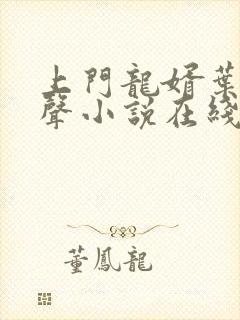 上門龍婿葉
聲小說在綫
董鳳龍